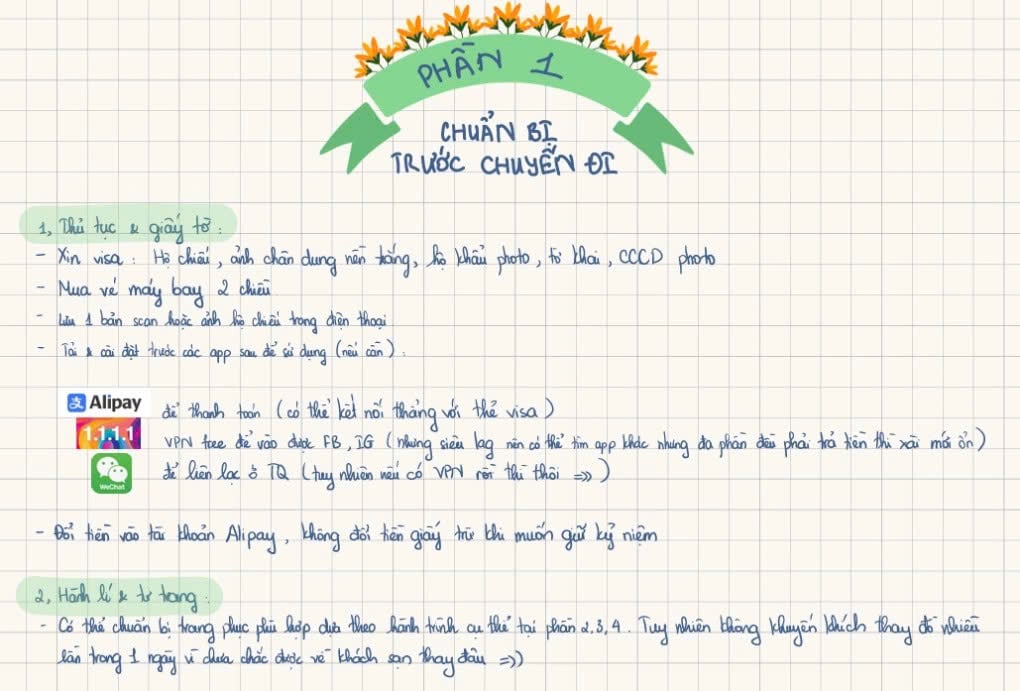 PHẦN 1
CHUẨN BỊ
TRƯỚC CHUYẾN ĐI
1, Thủ tục & giấy tờ :
- Xin visa : Hộ chiếu, ảnh chân dung nền trắng, hộ khẩu photo, tờ khai, CCCD photo
- Mua vé máy bay 2 chiều
- Lưu 1 bản scan hoặc ảnh hộ chiếu trong điện thoại
- Tải & cài đặt trước các app sau để sử dụng (nếu cần) :
Alipay để thanh toán (có thể kết nối thẳng với thẻ visa)
1.1.1.1 VPN free để vào được FB, IG (nhưng siêu lag nên có thể tìm app khác nhưng đa phần đều phải trả tiền thì xài mới ổn)
WeChat để liên lạc ở TQ (tuy nhiên nếu có VPN rồi thì thôi =>> )
- Đổi tiền vào tài khoản Alipay, không đổi tiền giấy trừ khi muốn giữ kỷ niệm
2, Hành lí & tư trang :
- Có thể chuẩn bị trang phục phù hợp dựa theo hành trình cụ thể tại phần 2,3,4. Tuy nhiên không khuyến khích thay đồ nhiều
lần trong 1 ngày vì chưa chắc được về khách sạn thay đâu =>)